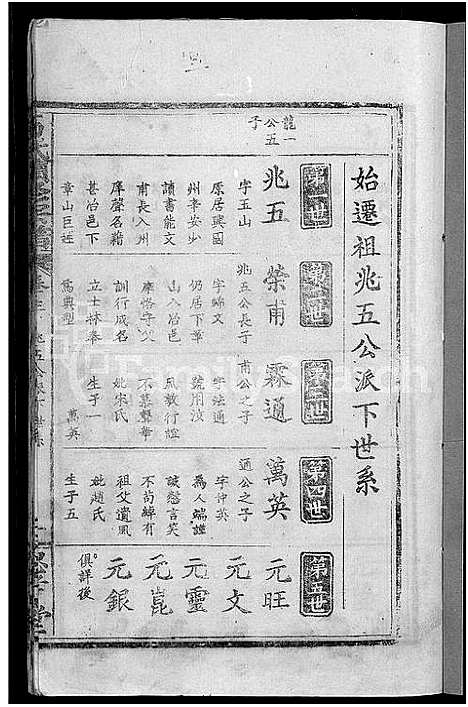 始遷祖兆五公派下世系
龍一
公五
子
第一世
兆五
字玉山
原居興國
州李安少
讀書能文
甫長入州
庠聲名藉
甚冶邑下
章山巨族
第二世
榮甫
兆五公長子
字錦文
仍居下章
山入冶邑
庠恪守父
訓行成名
立士林奉
為典型
第三世
霖通
甫公之子
字法通
號用汶
氏敦行誼
不慕聲華
妣宋氏
生子一
萬英
第四世
萬英
通公之子
字仲英
為人端謹
誠愨言笑
不苟綽有
祖父遺風
妣趙氏
生子五
第五世
元旺
元文
元靈
元崑
元銀
俱詳後